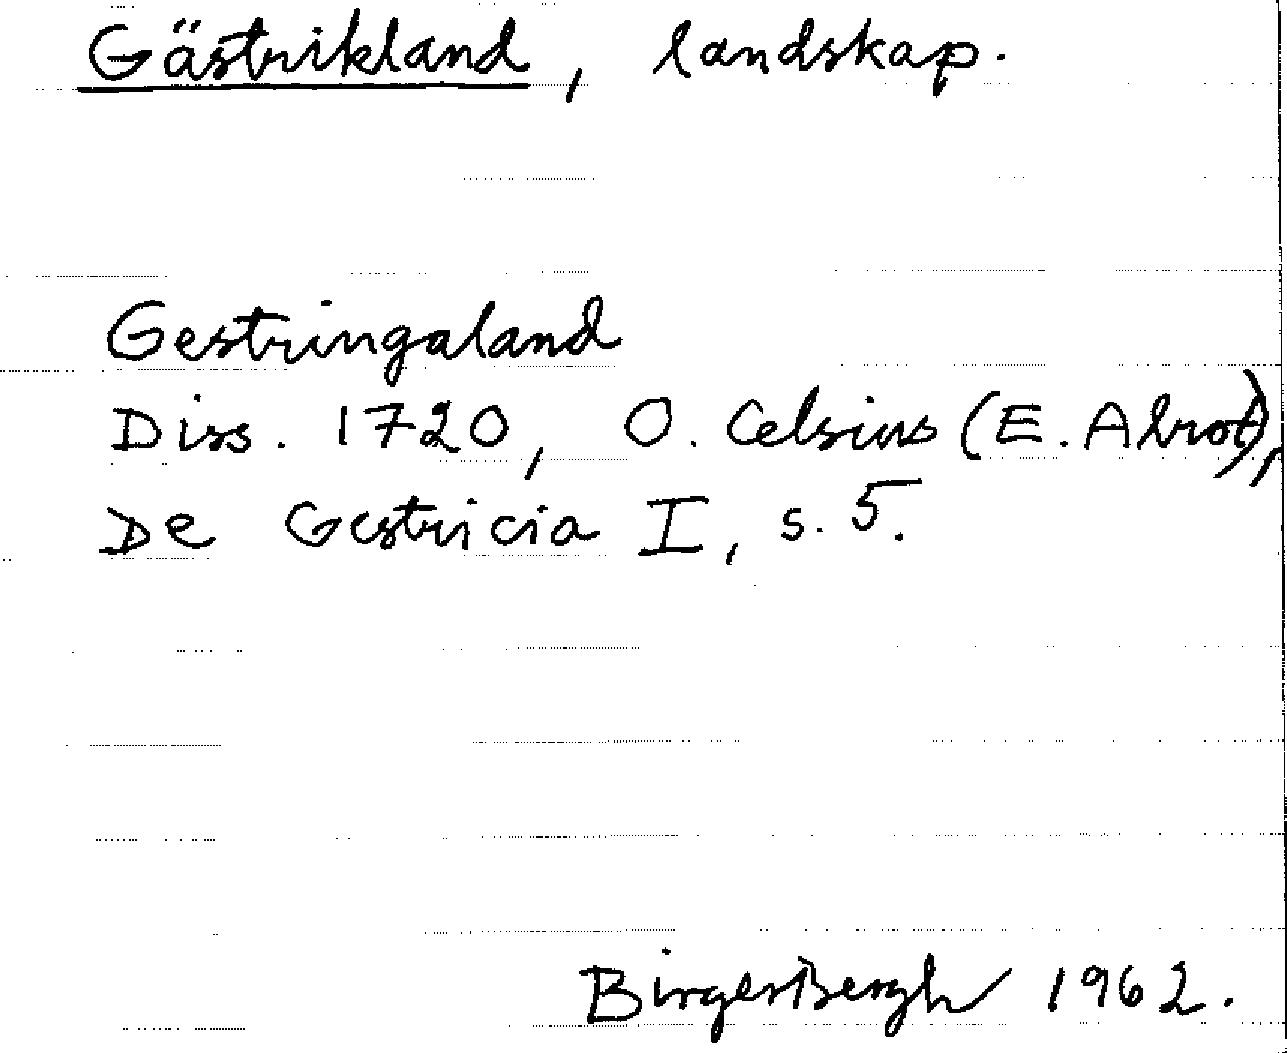 Gästrikland, landskap.
Gestringaland
Diss. 1720, O. Celsius (E. Alrot),
De Gestricia I, s. 5.
Birger Bergh 1962.